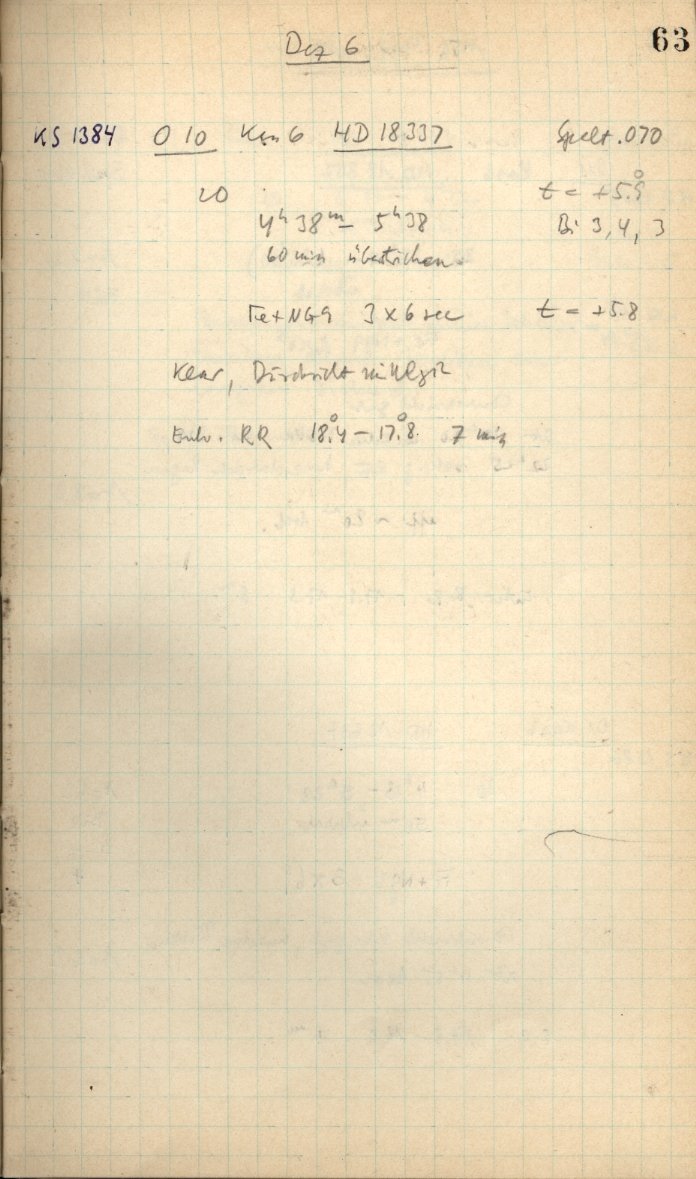 63
Dez 6
KS 1384 O 10 Kam 6 HD 18337 Spalt .070
20 t = +5°.9
4ʰ 38ᵐ – 5ʰ 38 Bi 3, 4, 3
60 min überstrichen
Fe + NG9 3 x 6 sec t = +5.8
Klar, Durchsicht mittelgut
Entw. RR 18°.4 – 17°.8 7 min